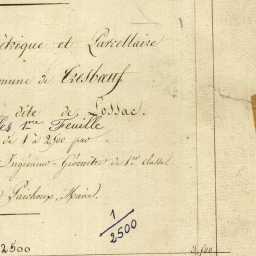 étrique et Parcellaire
mune de Tresbœuf
dite de Lossac.
les 1ère Feuille
de 1 à 2500 par
Ingénieur-Géomètre de 1re classe
Maire.
1/2500
2500